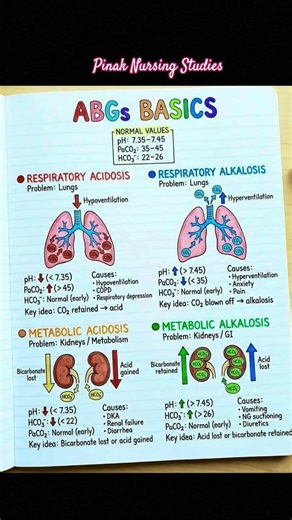 Pinak Nursing Studies
ABGs BASICS
NORMAL VALUES
pH: 7.35–7.45
PaCO₂: 35–45
HCO₃⁻: 22–26
RESPIRATORY ACIDOSIS
Problem: Lungs
Hypoventilation
pH: ↓ (< 7.35)
PaCO₂: ↑ (> 45)
HCO₃⁻: Normal (early)
Causes:
• Hypoventilation
• COPD
• Respiratory depression
Key idea: CO₂ retained → acid
RESPIRATORY ALKALOSIS
Problem: Lungs
CO₂ CO₂
Hyperventilation
pH: ↑ (> 7.45)
PaCO₂: ↓ (< 35)
HCO₃⁻: Normal (early)
Causes:
• Hyperventilation
• Anxiety
• Pain
Key idea: CO₂ blown off → alkalosis
METABOLIC ACIDOSIS
Problem: Kidneys / Metabolism
Bicarbonate
lost
Acid
gained
HCO₃⁻ HCO₃⁻
pH: ↓ (< 7.35)
HCO₃⁻: ↓ (< 22)
PaCO₂: Normal (early)
Causes:
• DKA
• Renal failure
• Diarrhea
Key idea: Bicarbonate lost or acid gained
METABOLIC ALKALOSIS
Problem: Kidneys / GI
Bicarbonate
retained
Acid
lost
pH: ↑ (> 7.45)
HCO₃⁻: ↑ (> 26)
PaCO₂: Normal (early)
Causes:
• Vomiting
• NG suctioning
• Diuretics
Key idea: Acid lost or bicarbonate retained